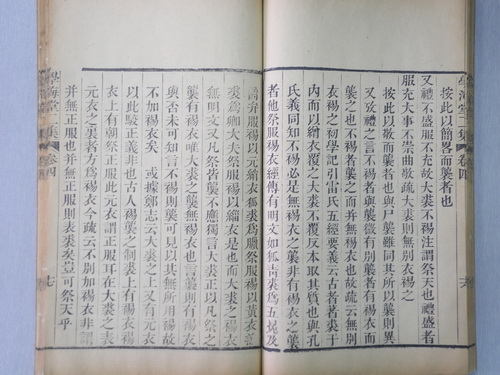 學海堂二集 卷四
按此以簡畧而襲者也
又禮不盛服不充故大裘不裼注謂祭天也禮盛者
服充大事不崇曲敬疏大裘則無別衣裼之
按此以敬而襲者也與尸襲雖同其所以襲則異
又攷禮之言不裼者與襲微有別襲者有裼衣而
襲之也不裼者襲之而并無裼衣也故疏云無別
衣裼之初學記引雷氏五經要義云古者著裘于
內而以繒衣覆之大裘不覆反本取其質也與孔
氏義同知不裼必是無裼衣之襲非有裼衣之襲
者他祭服裼衣經傳有明文如狐青裘為五冕及
爵弁服裼以元綃衣狐裘為臘祭服裼以黃衣
裘為卿大夫祭服裼以緇衣是也而大裘之裼衣
無明文又凡祭皆襲不應獨言大裘正以凡祭之
襲有裼衣唯大裘之襲無裼衣也不然裼之有
與否未可知言不裼則襲可見以其無所用裼故
不加裼衣矣 或據鄭志云大裘之上又有元衣
以此駁正義非也古人裼襲之制裘上有裼衣裼
衣上有朝祭正服此元衣謂正服耳在大裘之上
元衣之裏者方為裼衣今疏云不別加裼衣非謂
并無正服也并無正服則表裘矣豈可祭天乎
學海堂二集 卷四